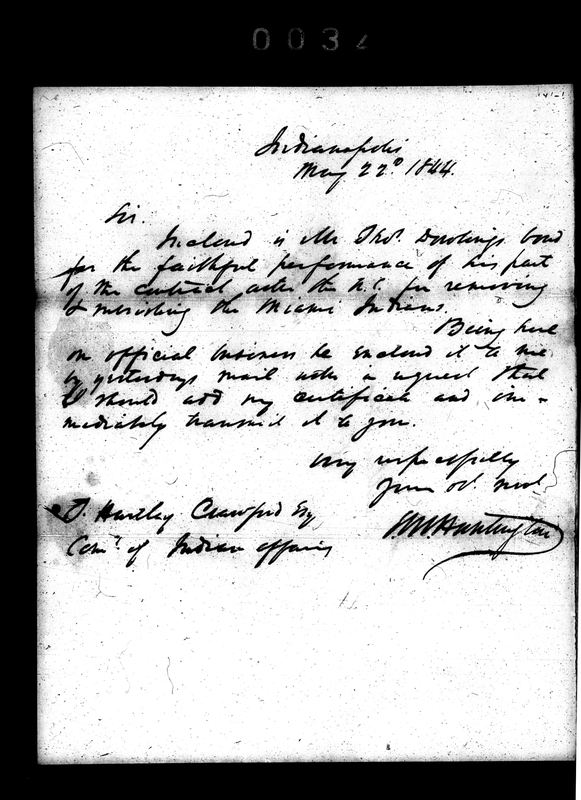 0032
Indianapolis
May 22d 1844.
Sir.
Inclosed is Mr Thos. Dowlings bond
for the faithful performance of his part
of the contract with the U.S. for removing
& subsisting the Miami Indians.
Being here
on official business he enclosed it to me
by yesterdays mail with a request that
I should add my certificate and im-
mediately transmit it to you.
Very respectfully
Your ob. Servt
T. Hartley Crawford Esq
Comr. of Indian affairs
Huntington